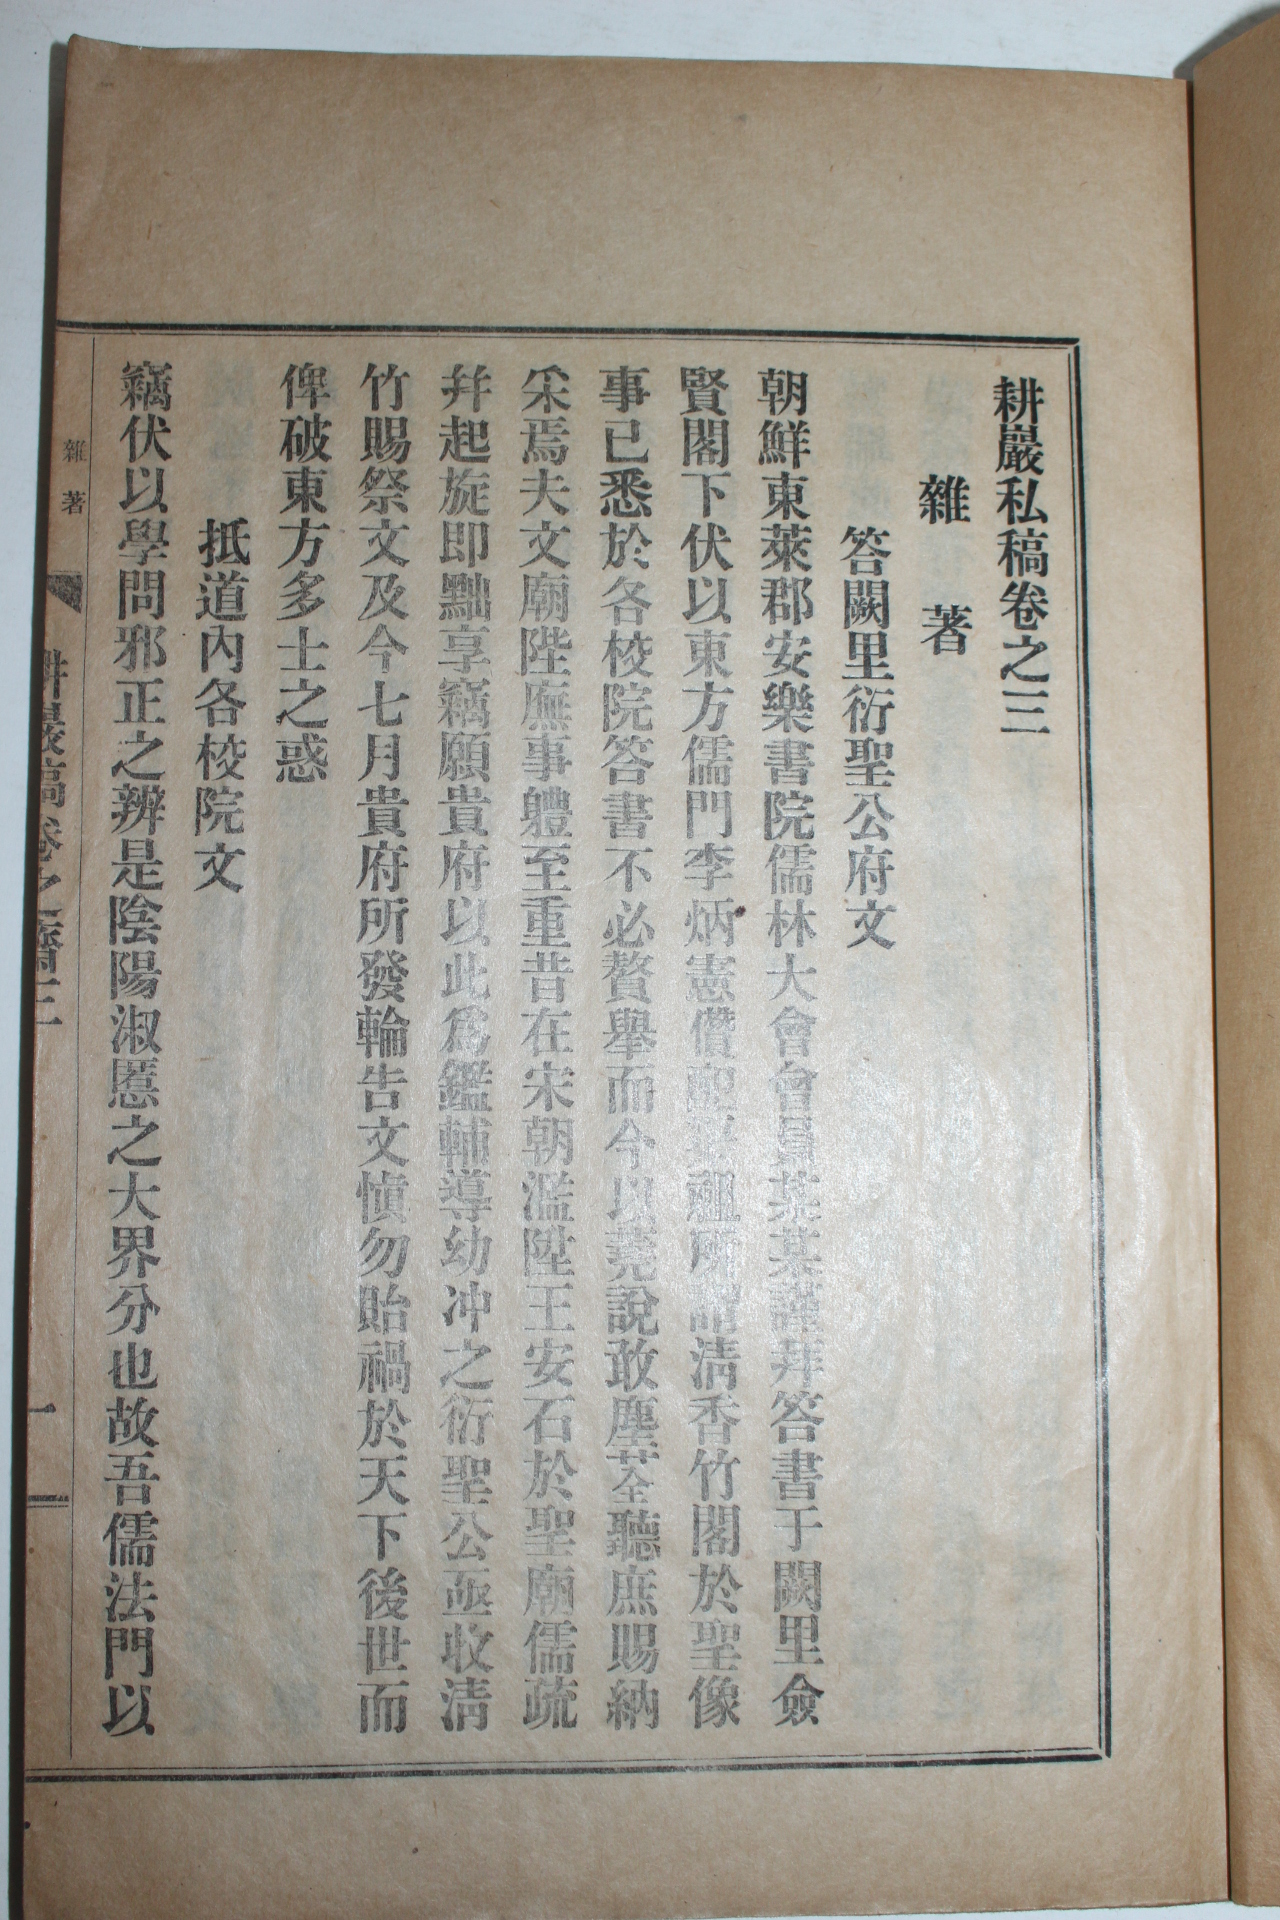 耕巖私稿卷之三
雜著
答闕里衍聖公府文
朝鮮東萊郡安樂書院儒林大會會員某某謹拜答書于闕里僉
賢閣下伏以東方儒門李炳憲僭配享祖所謂淸香竹閣於聖像
事已悉於各校院答書不必贅擧而今以蕘說敢塵荃聽庶賜納
采焉夫文廟陛廡事軆至重昔在宋朝濫陞王安石於聖廟儒疏
幷起旋即黜享竊願貴府以此爲鑑輔導幼冲之衍聖公亟收淸
竹賜祭文及今七月貴府所發輪告文愼勿貽禍於天下後世而
俾破東方多士之惑
抵道內各校院文
竊伏以學問邪正之辨是陰陽淑慝之大界分也故吾儒法門以
雜著
耕巖稿卷之三
一